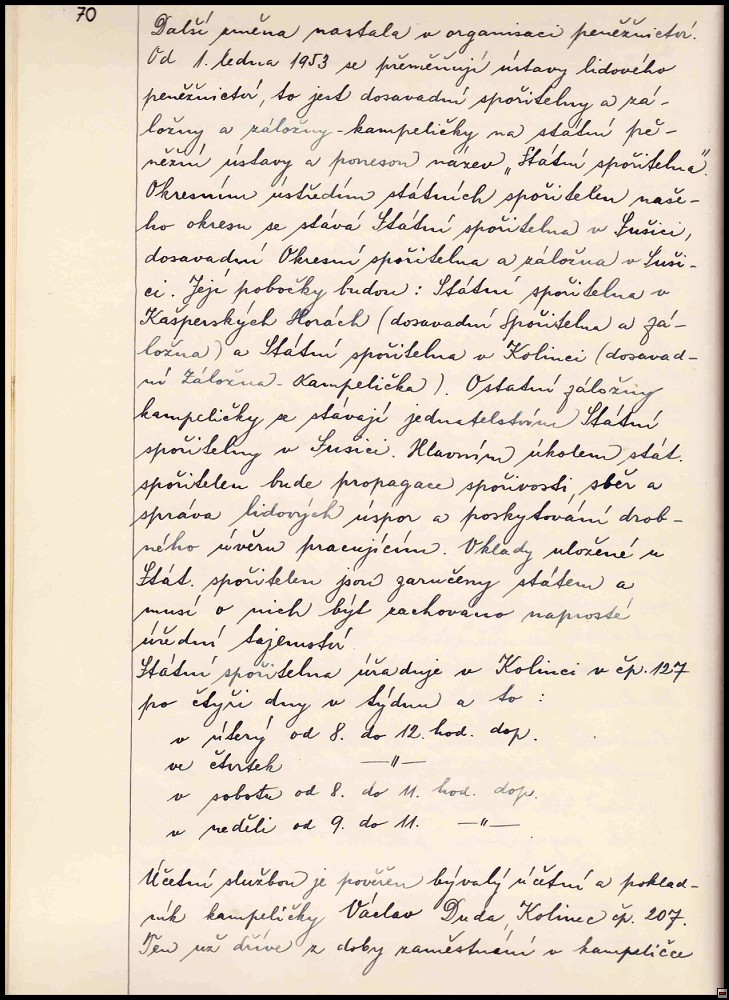 70
Další změna nastala v organisaci peněžnictví.
Od 1. ledna 1953 se přeměňují ústavy lidového
peněžnictví, to jest dosavadní spořitelny a zá-
ložny a záložny-kampeličky na státní pe-
něžní ústavy a ponesou název „Státní spořitelna".
Okresním ústředím státních spořitelen naše-
ho okresu se stává Státní spořitelna v Sušici,
dosavadní Okresní spořitelna a záložna v Suši-
ci. Její pobočky budou: Státní spořitelna v
Kašperských Horách (dosavadní Spořitelna a zá-
ložna) a Státní spořitelna v Kolinci (dosavad-
ní Záložna-Kampelička). Ostatní záložny
kampeličky se stávají jednatelstvím Státní
spořitelny v Sušici. Hlavním úkolem stát.
spořitelen bude propagace spořivosti, sběr a
správa lidových úspor a poskytování drob-
ného úvěru pracujícím. Vklady uložené u
Stát. spořitelen jsou zaručeny státem a
musí o nich být zachováno naprosté
úřední tajemství.
Státní spořitelna úřaduje v Kolinci v čp. 127
po čtyři dny v týdnu a to :
v úterý od 8. do 12. hod. dop.
ve čtvrtek —"—
v sobotu od 8. do 11. hod. dop.
v neděli od 9. do 11. —"—
Účetní službou je pověřen bývalý účetní a poklad-
ník kampeličky Václav Duda, Kolinec čp. 207.
Ten už dříve z doby zaměstnání v kampeličce